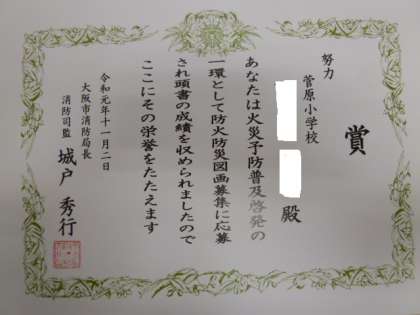 賞
努力
菅原小学校
殿
あなたは火災予防普及啓発の
一環として防火防災図画募集に応募
され頭書の成績を収められましたので
ここにその栄誉をたたえます
令和元年十一月二日
大阪市消防局長
消防司監 城戸秀行